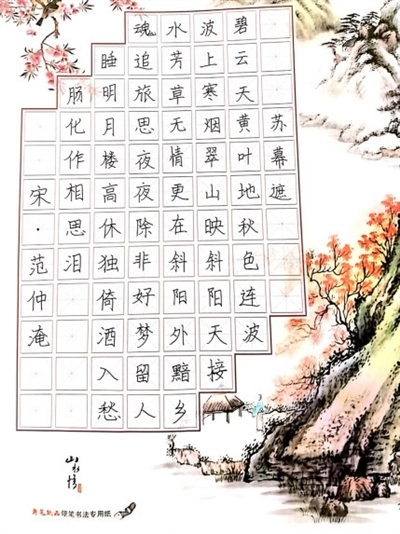 苏幕遮
碧云天黄叶地秋色连波
波上寒烟翠山映斜阳天接
水芳草无情更在斜阳外黯乡
魂追旅思夜夜除非好梦留人
睡明月楼高休独倚酒入愁
肠化作相思泪
宋·范仲淹
山水情
硬笔书法专用纸